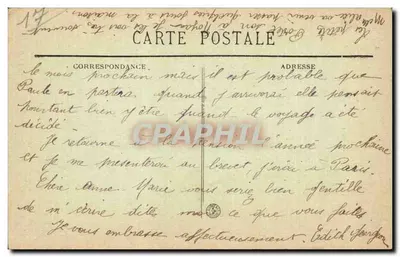 17
CARTE POSTALE
CORRESPONDANCE
ADRESSE
le mois prochain mais il est probable que
Paule en partira quand j'arriverai elle pensait
pourtant bien y être quand le voyage a été
décidé.
Je retourne à la pension l'année prochaine
et je me présenterai au brevet, j'irai à Paris.
Chère Anne-Marie vous serez bien gentille
de m'écrire dites moi ce que vous faites
Je vous embrasse affectueusement. Edith
CPAPHIL